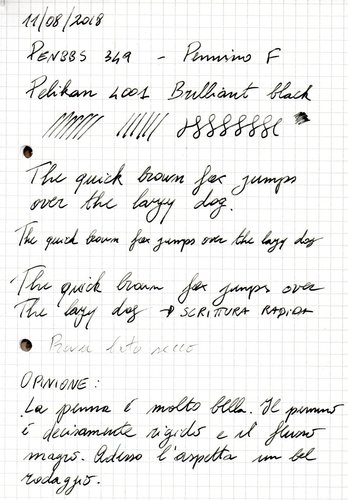 11/08/2018
PENBBS 349 - Pennino F
Pelikan 4001 Brilliant black
The quick brown fox jumps
over the lazy dog.
The quick brown fox jumps over the lazy dog
The quick brown fox jumps over
The lazy dog → SCRITTURA RAPIDA
Prova lato secco
OPINIONE:
La penna è molto bella. Il pennino
è decisamente rigido e il flusso
magro. Adesso l'aspetta un bel
rodaggio.